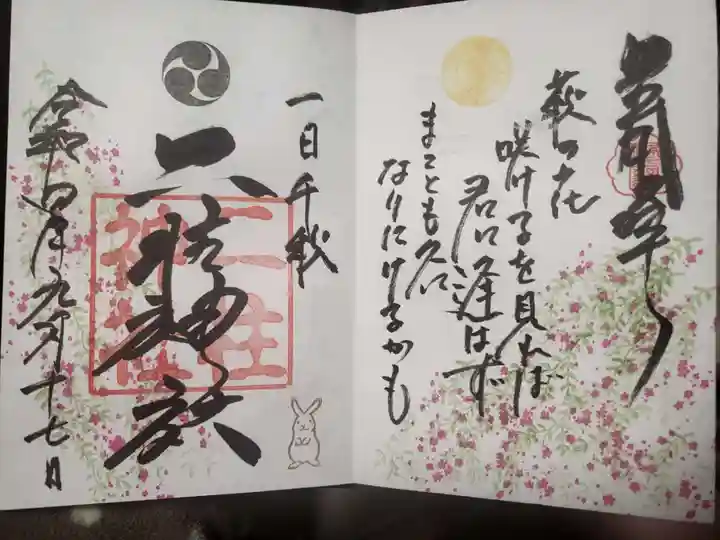 萩の花
咲けるを見れば
君に逢はず
まことも久に
なりにけるかも
一日千秋
二柱神社
二柱
神社
令和四年九月十七日